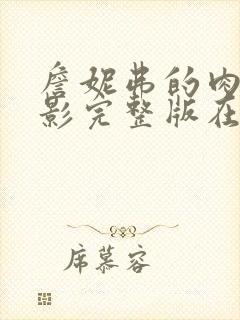 詹妮弗的肉
影完整版在
席慕容